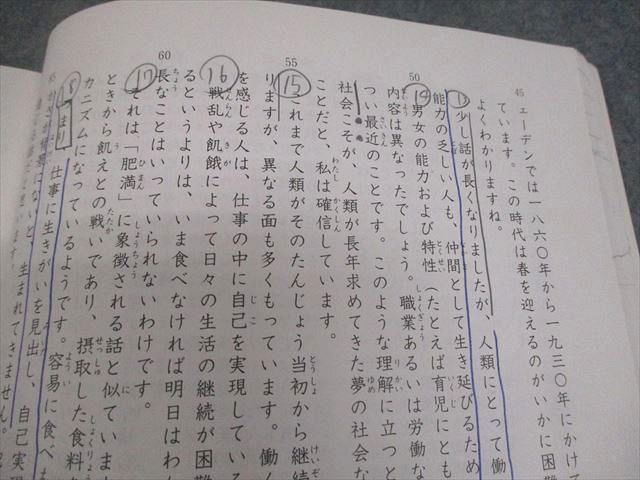 45
ェーデンでは一八六〇年から一九三〇年にかけて
ています。この時代は春を迎えるのがいかに困難
よくわかりますね。
⑬少し話が長くなりましたが、人類にとって働
能力の乏しい人も、仲間として生き延びるため
50
⑭男女の能力および特性（たとえば育児にとも
内容は異なったでしょう。職業あるいは労働な
つい最近のことです。このような理解に立つと
社会こそが、人類が長年求めてきた夢の社会な
ことだと、私は確信しています。
55
⑮これまで人類がそのたんじょう当初から継続
りますが、異なる面も多くもっています。働く
を感じる人は、仕事の中に自己を実現している
⑯戦乱や飢餓によって日々の生活の継続が困難
るというよりは、いま食べなければ明日はわ
60
長なことはいっていられないわけです。
⑰それは「肥満」に象徴される話と似ていま
ときから飢えとの戦いであり、摂取した食料
カニズムになっているようです。容易に食べ
⑱つまり、仕事に生きがいを見出し、自己実
65
ないと、生まれてきません。